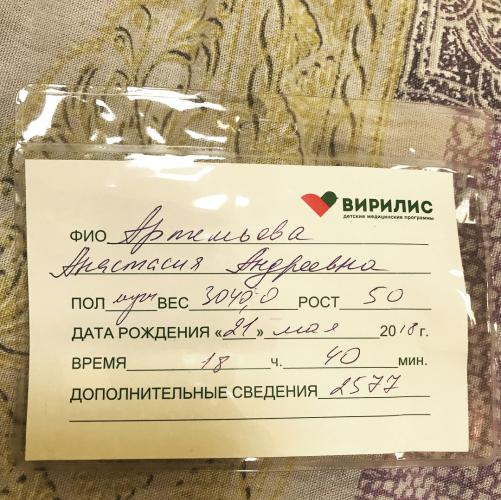 ВИРИЛИС
детские медицинские программы
ФИО Артемьева
Анастасия Андреевна
ПОЛ муж ВЕС 3040,0 РОСТ 50
ДАТА РОЖДЕНИЯ «21» мая 2018 г.
ВРЕМЯ 18 ч. 40 мин.
ДОПОЛНИТЕЛЬНЫЕ СВЕДЕНИЯ 2577